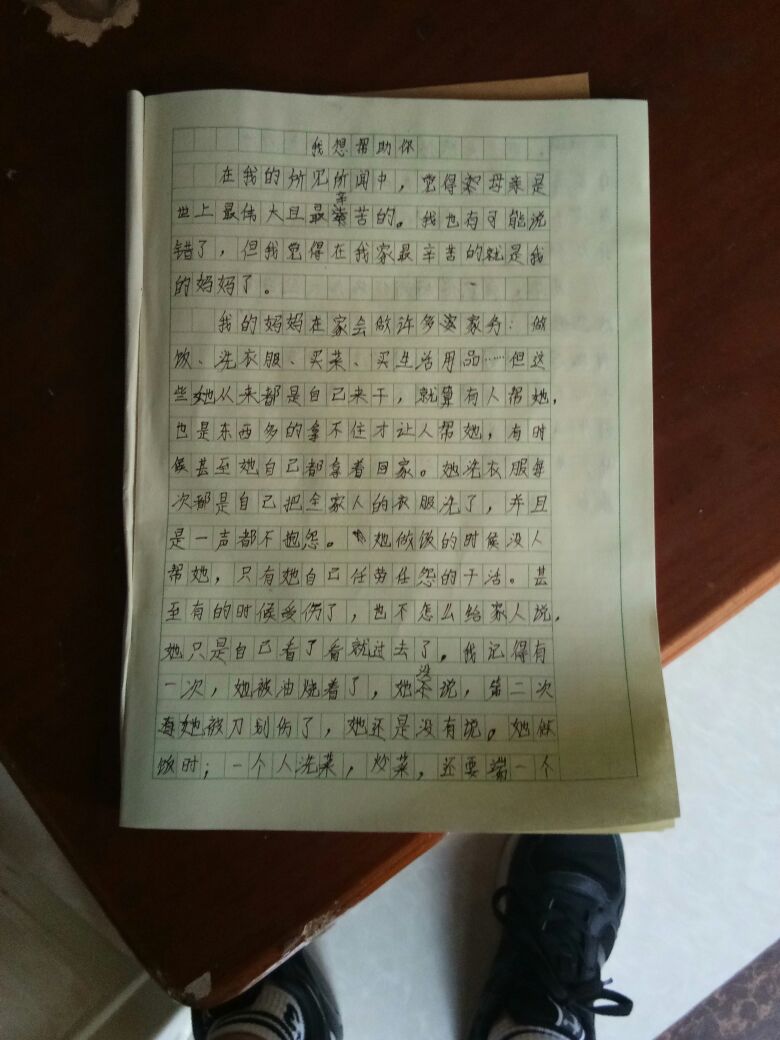 我想帮助你
在我的所见所闻中，觉得母亲是
世上最伟大且最辛苦的。我也有可能说
错了，但我觉得在我家最辛苦的就是我
的妈妈了。
我的妈妈在家会做许多家务：做
饭、洗衣服、买菜、买生活用品……但这
些她从来都是自己来干，就算有人帮她，
也是东西多的拿不住才让人帮她，有时
候甚至她自己都拿着回家。她洗衣服每
次都是自己把全家人的衣服洗了，并且
是一声都不抱怨。她做饭的时候没人
帮她，只有她自己任劳任怨的干活。甚
至有的时候受伤了，也不怎么给家人说，
她只是自己看了看就过去了。我记得有
一次，她被油烧着了，她没说，第二次
她被刀划伤了，她还是没有说。她做
饭时；一个人洗菜，炒菜，还要端一个